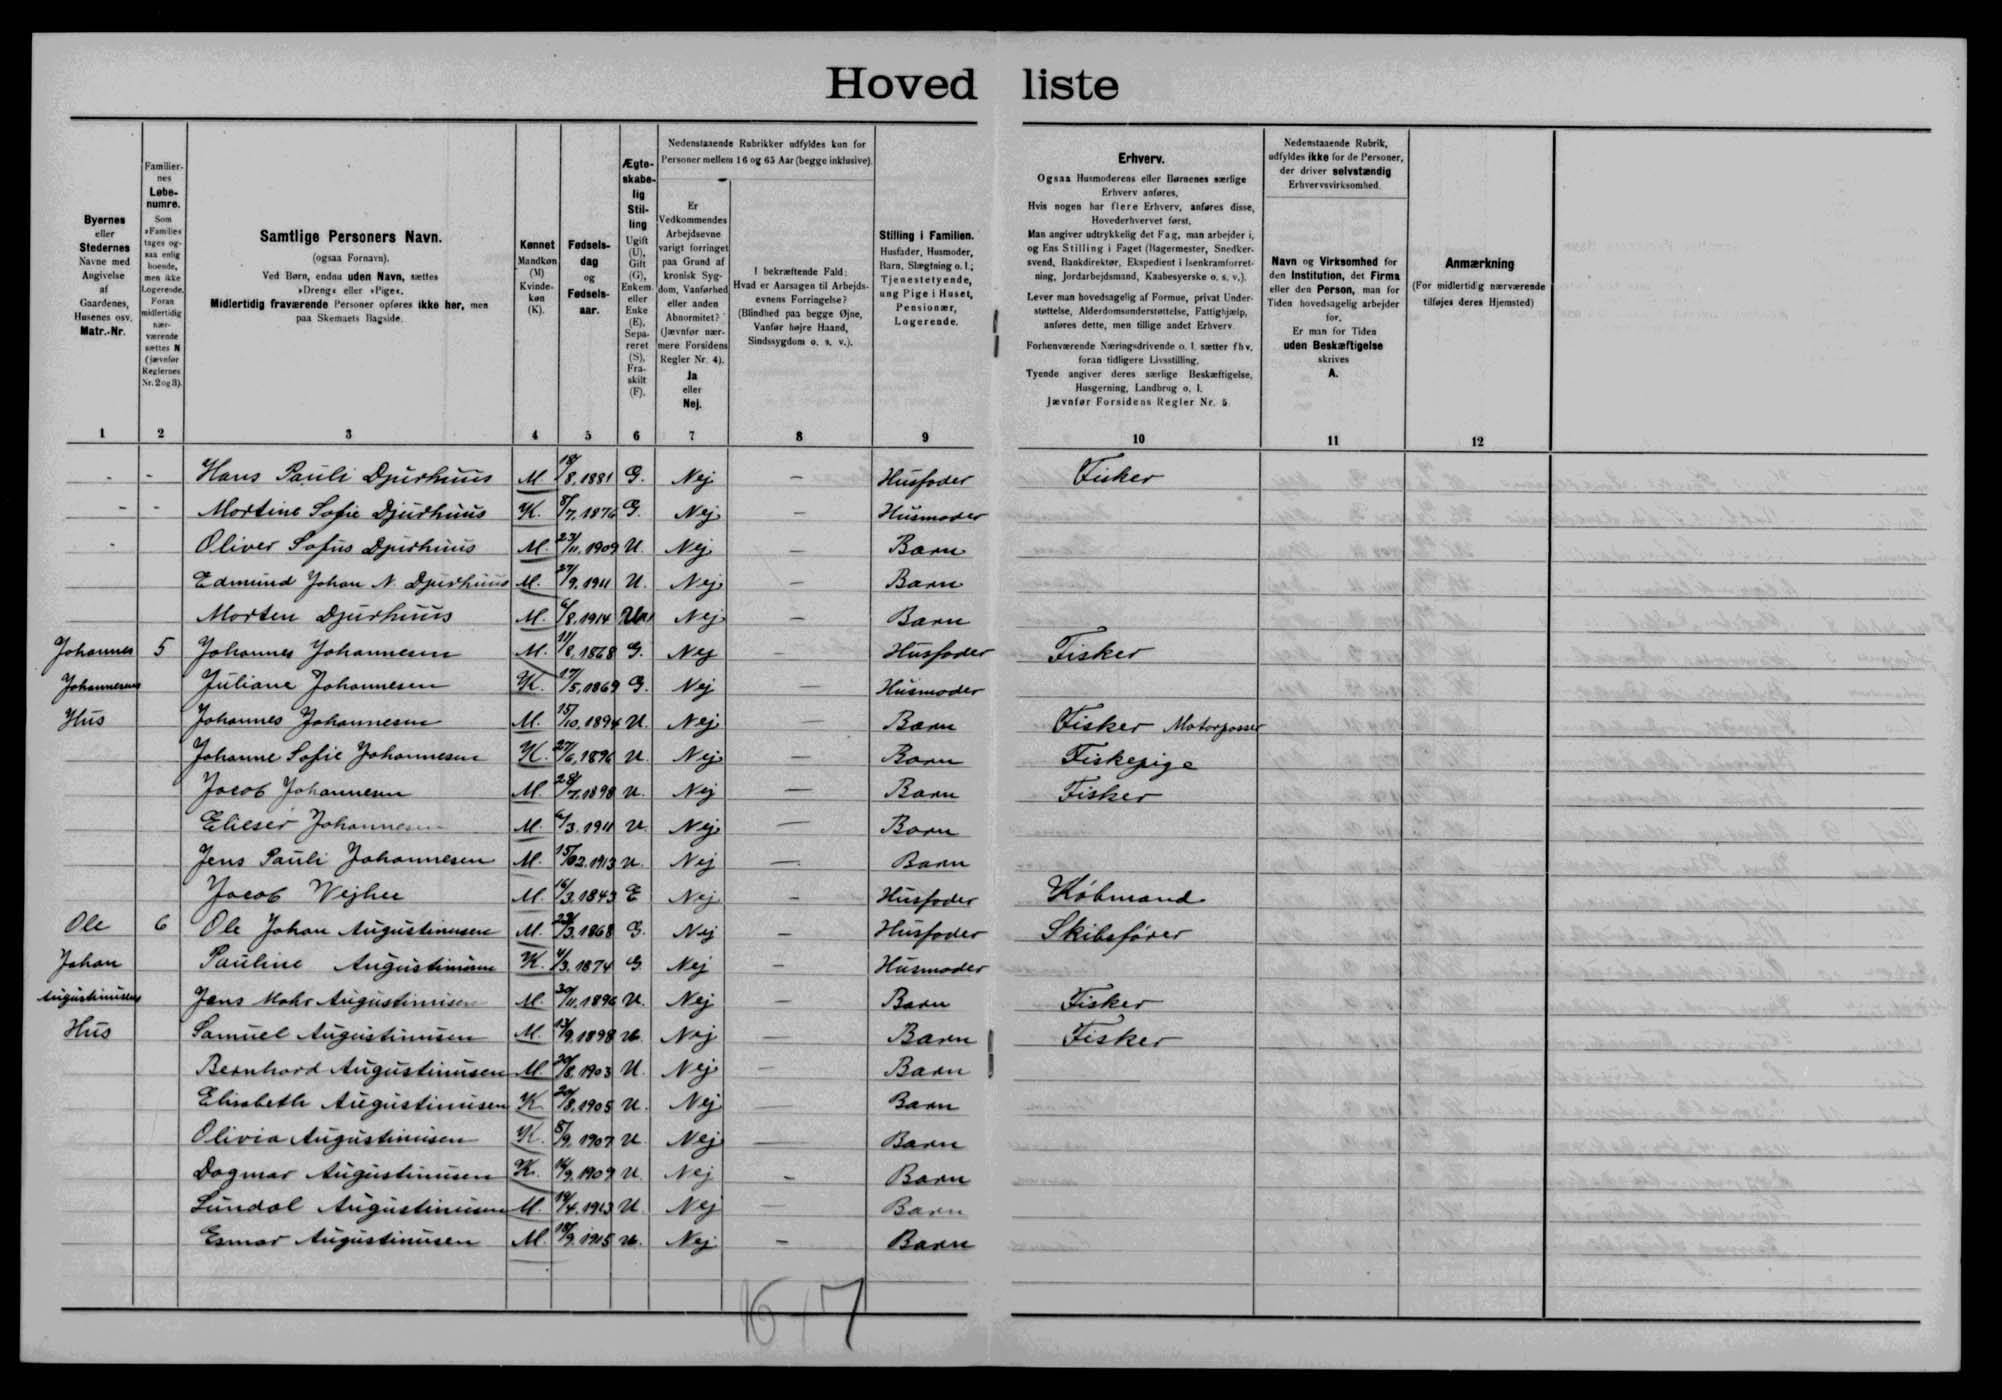 Hovedliste
Byernes
eller
Stedernes
Navne med
Angivelse
af
Gaardenes,
Husenes osv.
Matr.-Nr.
Familier-
nes
Løbe-
numre.
Som
»Familie«
tages og-
saa enlig
boende,
men ikke
Logerende.
Foran
midlertidig
nær-
værende
sættes N
(jævnfør
Reglernes
Nr. 2 og 3).
Samtlige Personers Navn.
(ogsaa Fornavn).
Ved Børn, endnu uden Navn, sættes
»Dreng« eller »Pige«.
Midlertidig fraværende Personer opføres ikke her, men
paa Skemaets Bagside.
Kønnet
Mandkøn
(M)
Kvinde-
køn
(K).
Fødsels-
dag
og
Fødsels-
aar.
Ægte-
skabe-
lig
Stil-
ling
Ugift
(U),
Gift
(G),
Enkem.
eller
Enke
(E),
Sepa-
reret
(S),
Fra-
skilt
(F).
Nedenstaaende Rubrikker udfyldes kun for
Personer mellem 16 og 65 Aar (begge inklusive).
Er
Vedkommendes
Arbejdsevne
varigt forringet
paa Grund af
kronisk Syg-
dom, Vanførhed
eller anden
Abnormitet?
(Jævnfør nær-
mere Forsidens
Regler Nr. 4).
Ja
eller
Nej.
I bekræftende Fald:
Hvad er Aarsagen til Arbejds-
evnens Forringelse?
(Blindhed paa begge Øjne,
Vanfør højre Haand,
Sindssygdom o. s. v.).
Stilling i Familien.
Husfader, Husmoder,
Barn, Slægtning o. l.;
Tjenestetyende,
ung Pige i Huset,
Pensionær,
Logerende.
Erhverv.
Ogsaa Husmoderens eller Børnenes særlige
Erhverv anføres.
Hvis nogen har flere Erhverv, anføres disse,
Hovederhvervet først.
Man angiver udtrykkelig det Fag, man arbejder i,
og Ens Stilling i Faget (Bagermester, Snedker-
svend, Bankdirektør, Ekspedient i Isenkramforret-
ning, Jordarbejdsmand, Kaabesyerske o. s. v.).
Lever man hovedsagelig af Formue, privat Under-
støttelse, Alderdomsunderstøttelse, Fattighjælp,
anføres dette, men tillige andet Erhverv.
Forhenværende Næringsdrivende o. l. sætter fhv.
foran tidligere Livsstilling.
Tyende angiver deres særlige Beskæftigelse,
Husgerning, Landbrug o. l.
Jævnfør Forsidens Regler Nr. 5.
Nedenstaaende Rubrik,
udfyldes ikke for de Personer,
der driver selvstændig
Erhvervsvirksomhed.
Navn og Virksomhed for
den Institution, det Firma
eller den Person, man for
Tiden hovedsagelig arbejder
for.
Er man for Tiden
uden Beskæftigelse
skrives
A.
Anmærkning
(For midlertidig nærværende
tilføjes deres Hjemsted)
1 2 3 4 5 6 7 8 9 10 11 12
- - Hans Pauli Djurhuus M. 18/8. 1881 G. Nej — Husfader Fisker
- - Mortine Sofie Djurhuus K. 8/7. 1876 G. Nej — Husmoder
- Oliver Sofus Djurhuus M. 23/11. 1909 U. Nej — Barn
Edmund Johan N. Djurhuus M. 27/9. 1911 U. Nej — Barn
Morten Djurhuus M. 6/8. 1914 Nej — Barn
Johannes 5 Johannes Johannesen M. 11/8. 1868 G. Nej — Husfader Fisker
Johannesens Juliane Johannesen K. 17/5. 1869 G. Nej — Husmoder
Hus Johannes Johannesen M. 15/10. 1894 U. Nej — Barn Fisker Motorpasser
Johanne Sofie Johannesen K. 27/6. 1896 U. Nej — Barn Fiskepige
Jacob Johannesen M. 28/7. 1898 U. Nej — Barn Fisker
Elieser Johannesen M. 6/3. 1911 U. Nej — Barn
Jens Pauli Johannesen M. 15/12. 1913 U. Nej — Barn
Jacob Wejhe M. 16/3. 1843 E Nej — Husfader Købmand
Ole 6 Ole Johan Augustinusen M. 23/3. 1868 G. Nej — Husfader Skibsfører
Johan Pauline Augustinusen K. 4/3. 1874 G Nej — Husmoder
Augustinusens Jens Mohr Augustinusen M. 30/11. 1896 U. Nej — Barn Fisker
Hus Samuel Augustinusen M. 13/9. 1898 U. Nej — Barn Fisker
Bernhard Augustinusen M. 20/8. 1903 U. Nej — Barn
Elisabeth Augustinusen K 20/8. 1905 U. Nej — Barn
Olivia Augustinusen K. 8/9. 1907 U. Nej — Barn
Dagmar Augustinusen K. 14/9. 1909 U. Nej — Barn
Lundal Augustinusen M. 19/4. 1913 U. Nej — Barn
Esmar Augustinusen M. 18/9. 1915 U. Nej — Barn
16 + 7